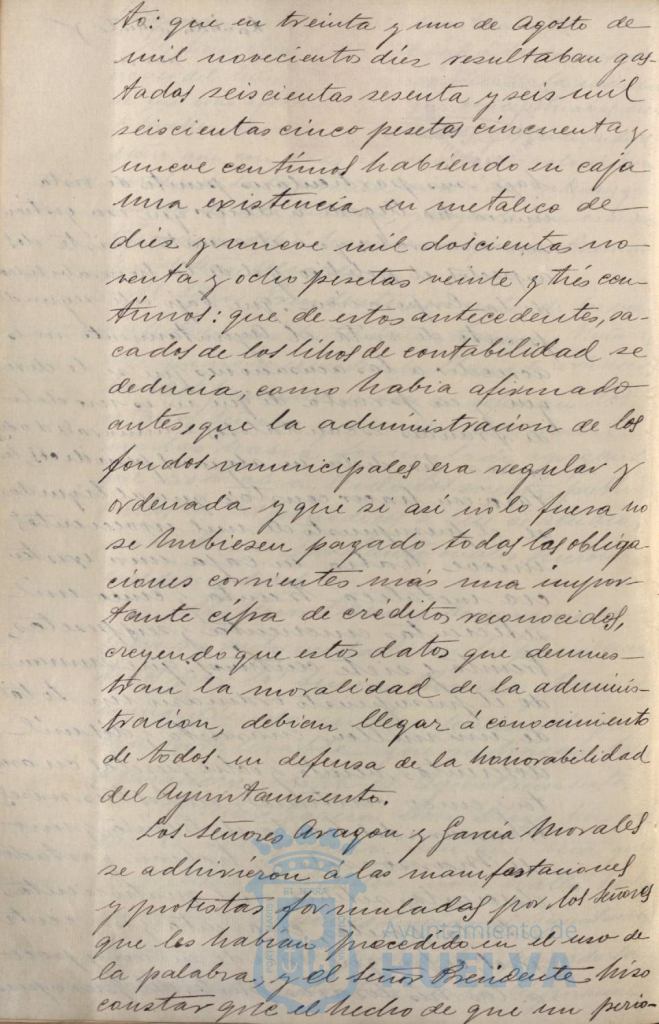 to: que en treinta y uno de Agosto de
mil novecientos diez resultaban gas-
tadas seiscientas sesenta y seis mil
seiscientas cinco pesetas cincuenta y
nueve centimos habiendo en caja
una existencia en metalico de
diez y nueve mil doscientas no-
venta y ocho pesetas veinte y trés cen-
timos: que de estos antecedentes, sa-
cados de los libros de contabilidad se
deducia, como habia afirmado
antes, que la administracion de los
fondos municipales era regular y
ordenada y que si así no lo fuera no
se hubiesen pagado todas las obliga-
ciones corrientes más una impor-
tante cifra de créditos reconocidos,
creyendo que estos datos que demues-
tran la moralidad de la adminis-
tracion, debian llegar á conocimiento
de todos en defensa de la honorabilidad
del Ayuntamiento.
Los Señores Aragon y Garcia Morales
se adhirieron á las manifestaciones
y protestas formuladas por los Señores
que les habian precedido en el uso de
la palabra, y el Señor Presidente hizo
constar que el hecho de que un perio-
Ayuntamiento de
HUELVA